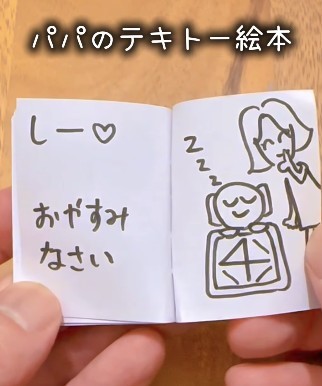 パパのテキトー絵本
しー♡
おやすみ
なさい
z
z
z